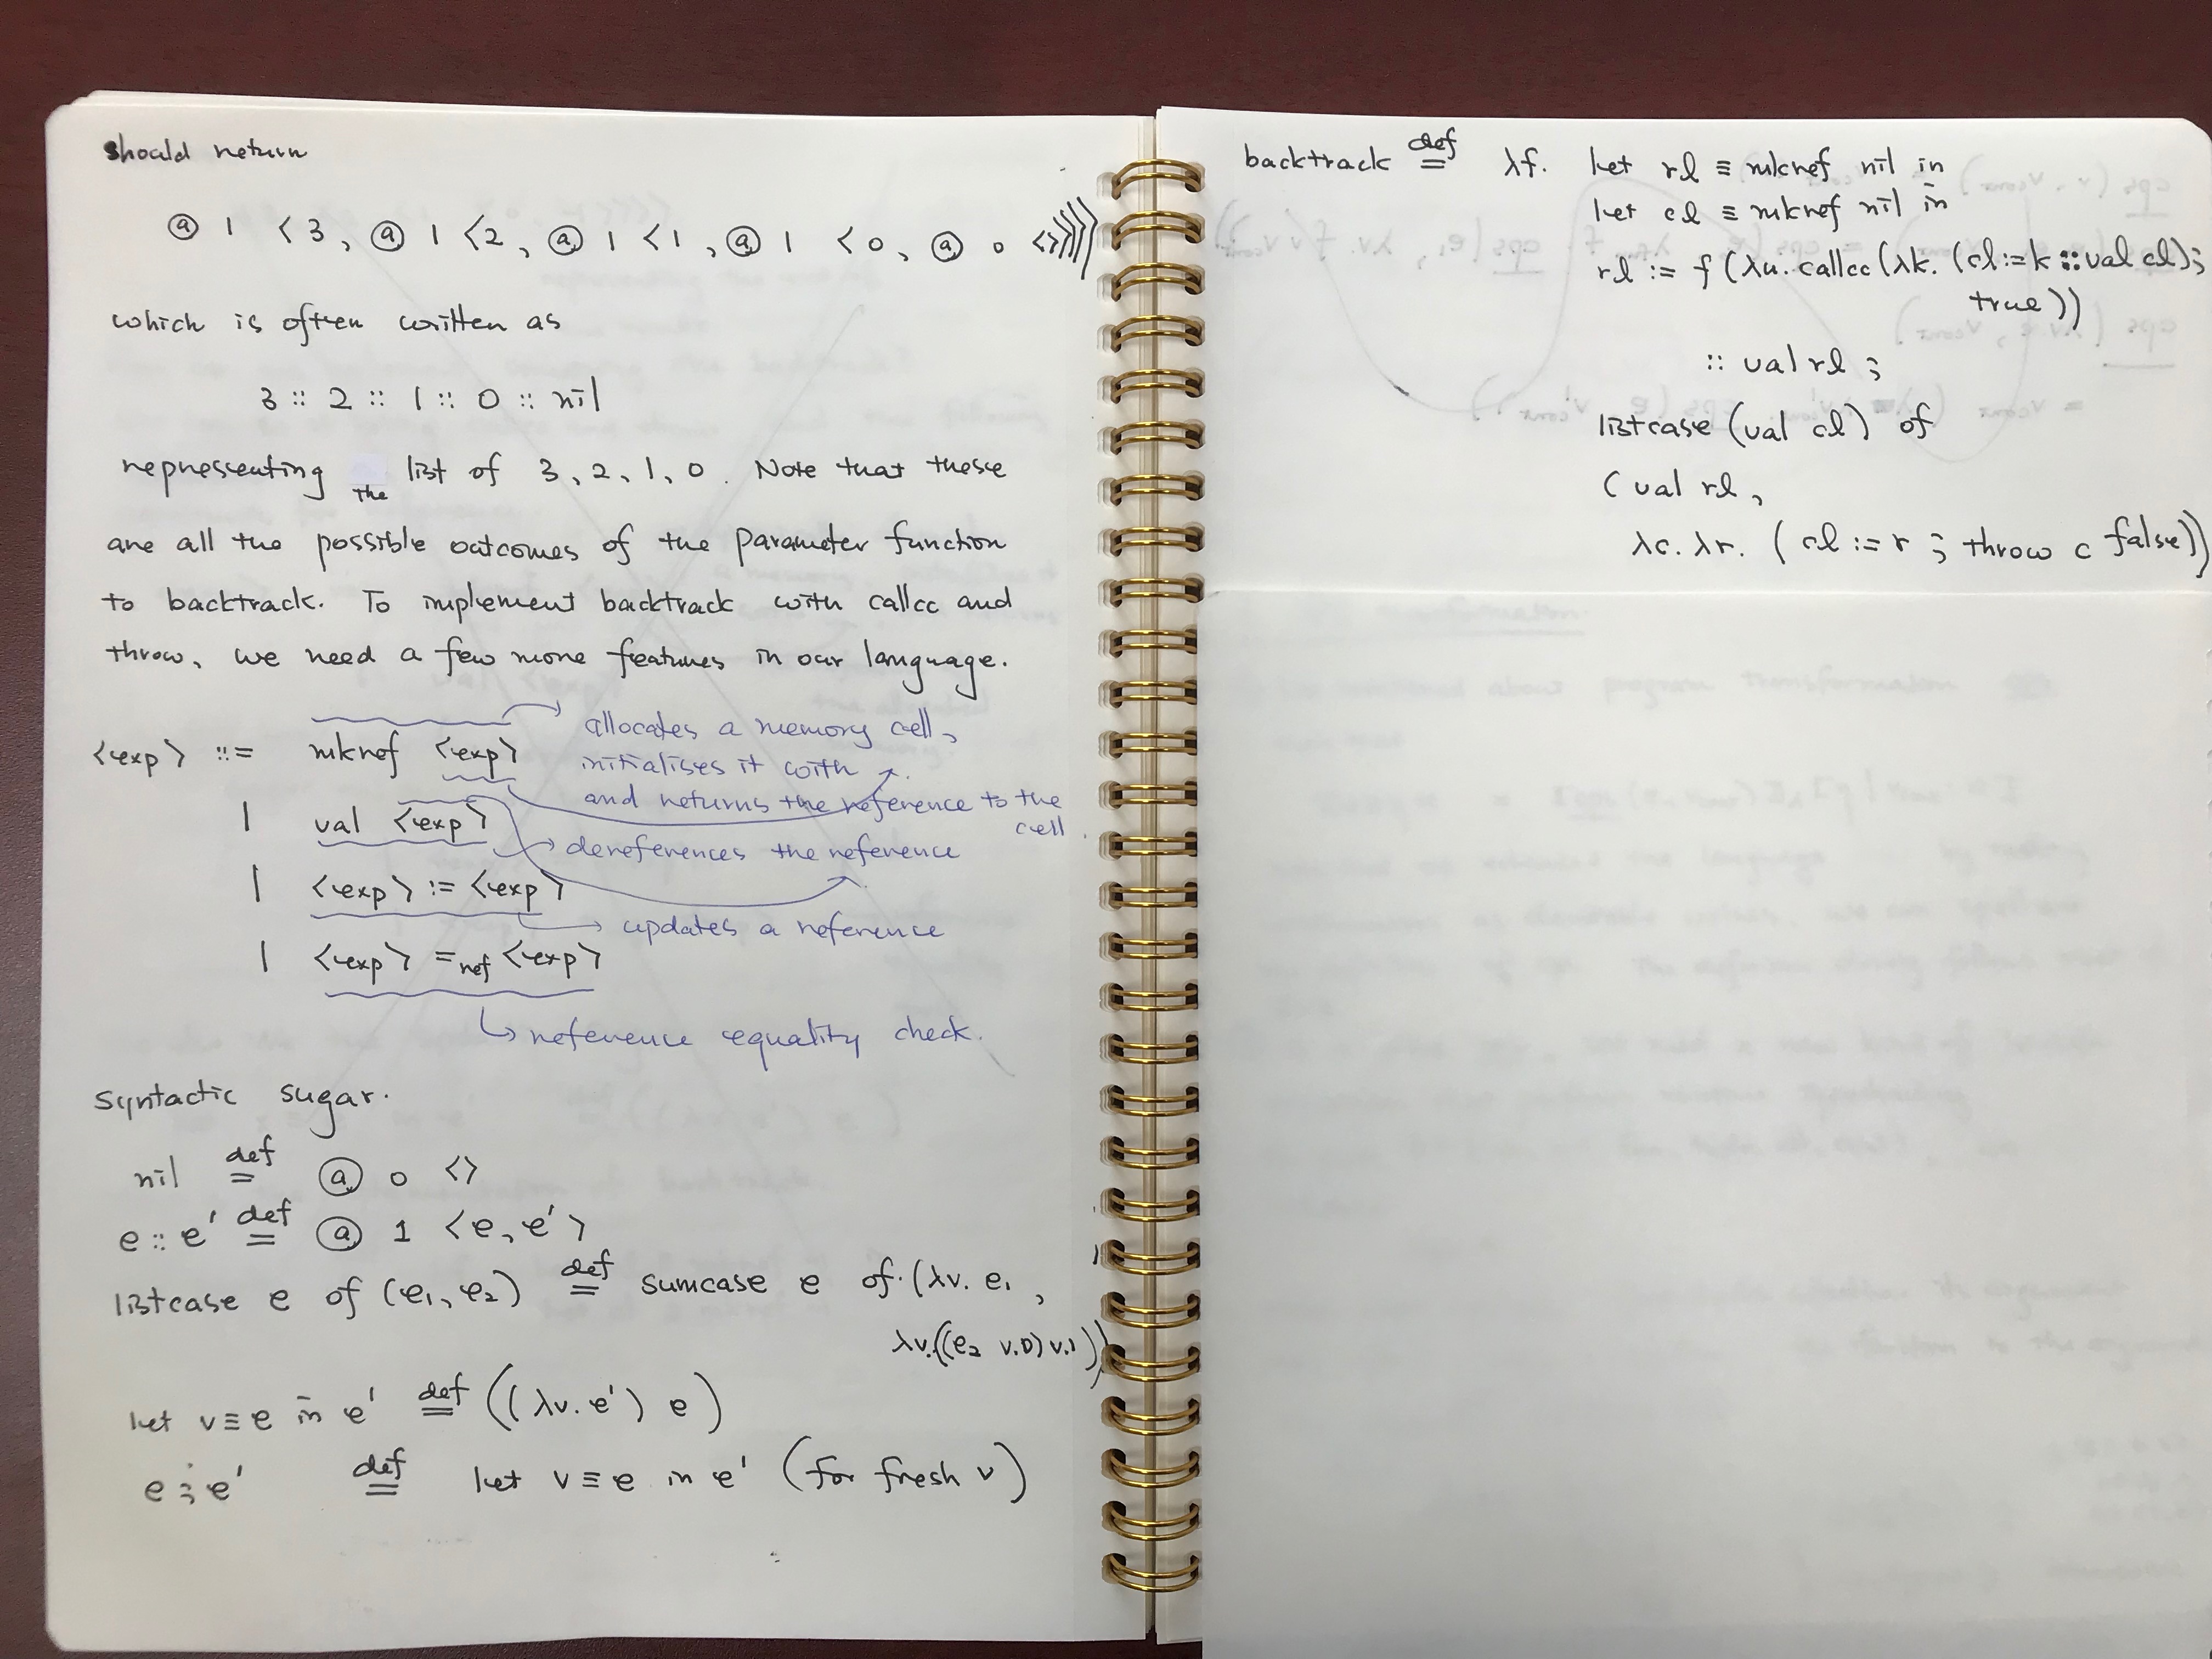 should return
@ 1 <3, @ 1 <2, @ 1 <1, @ 1 <0, @ 0 <>>>>>
which is often written as
3 :: 2 :: 1 :: 0 :: nil
representing the list of 3, 2, 1, 0. Note that these
are all the possible outcomes of the parameter function
to backtrack. To implement backtrack with callcc and
throw, we need a few more features in our language.
<exp> ::= mkref <exp>
allocates a memory cell,
initialises it with
and returns the reference to the
cell.
| val <exp>
dereferences the reference
| <exp> := <exp>
updates a reference
| <exp> =ref <exp>
reference equality check.
Syntactic sugar.
nil def= @ 0 <>
e :: e' def= @ 1 <e, e'>
listcase e of (e₁, e₂) def= sumcase e of (λv. e₁,
λv.((e₂ v.0) v.1))
let v ≡ e in e' def= ((λv. e') e)
e ; e' def= let v ≡ e in e' (for fresh v)
backtrack def= λf. let rl ≡ mkref nil in
let cl ≡ mkref nil in
rl := f (λu. callcc (λk. (cl := k :: val cl);
true))
:: val rl ;
listcase (val cl) of
( val rl,
λc. λr. ( cl := r ; throw c false))